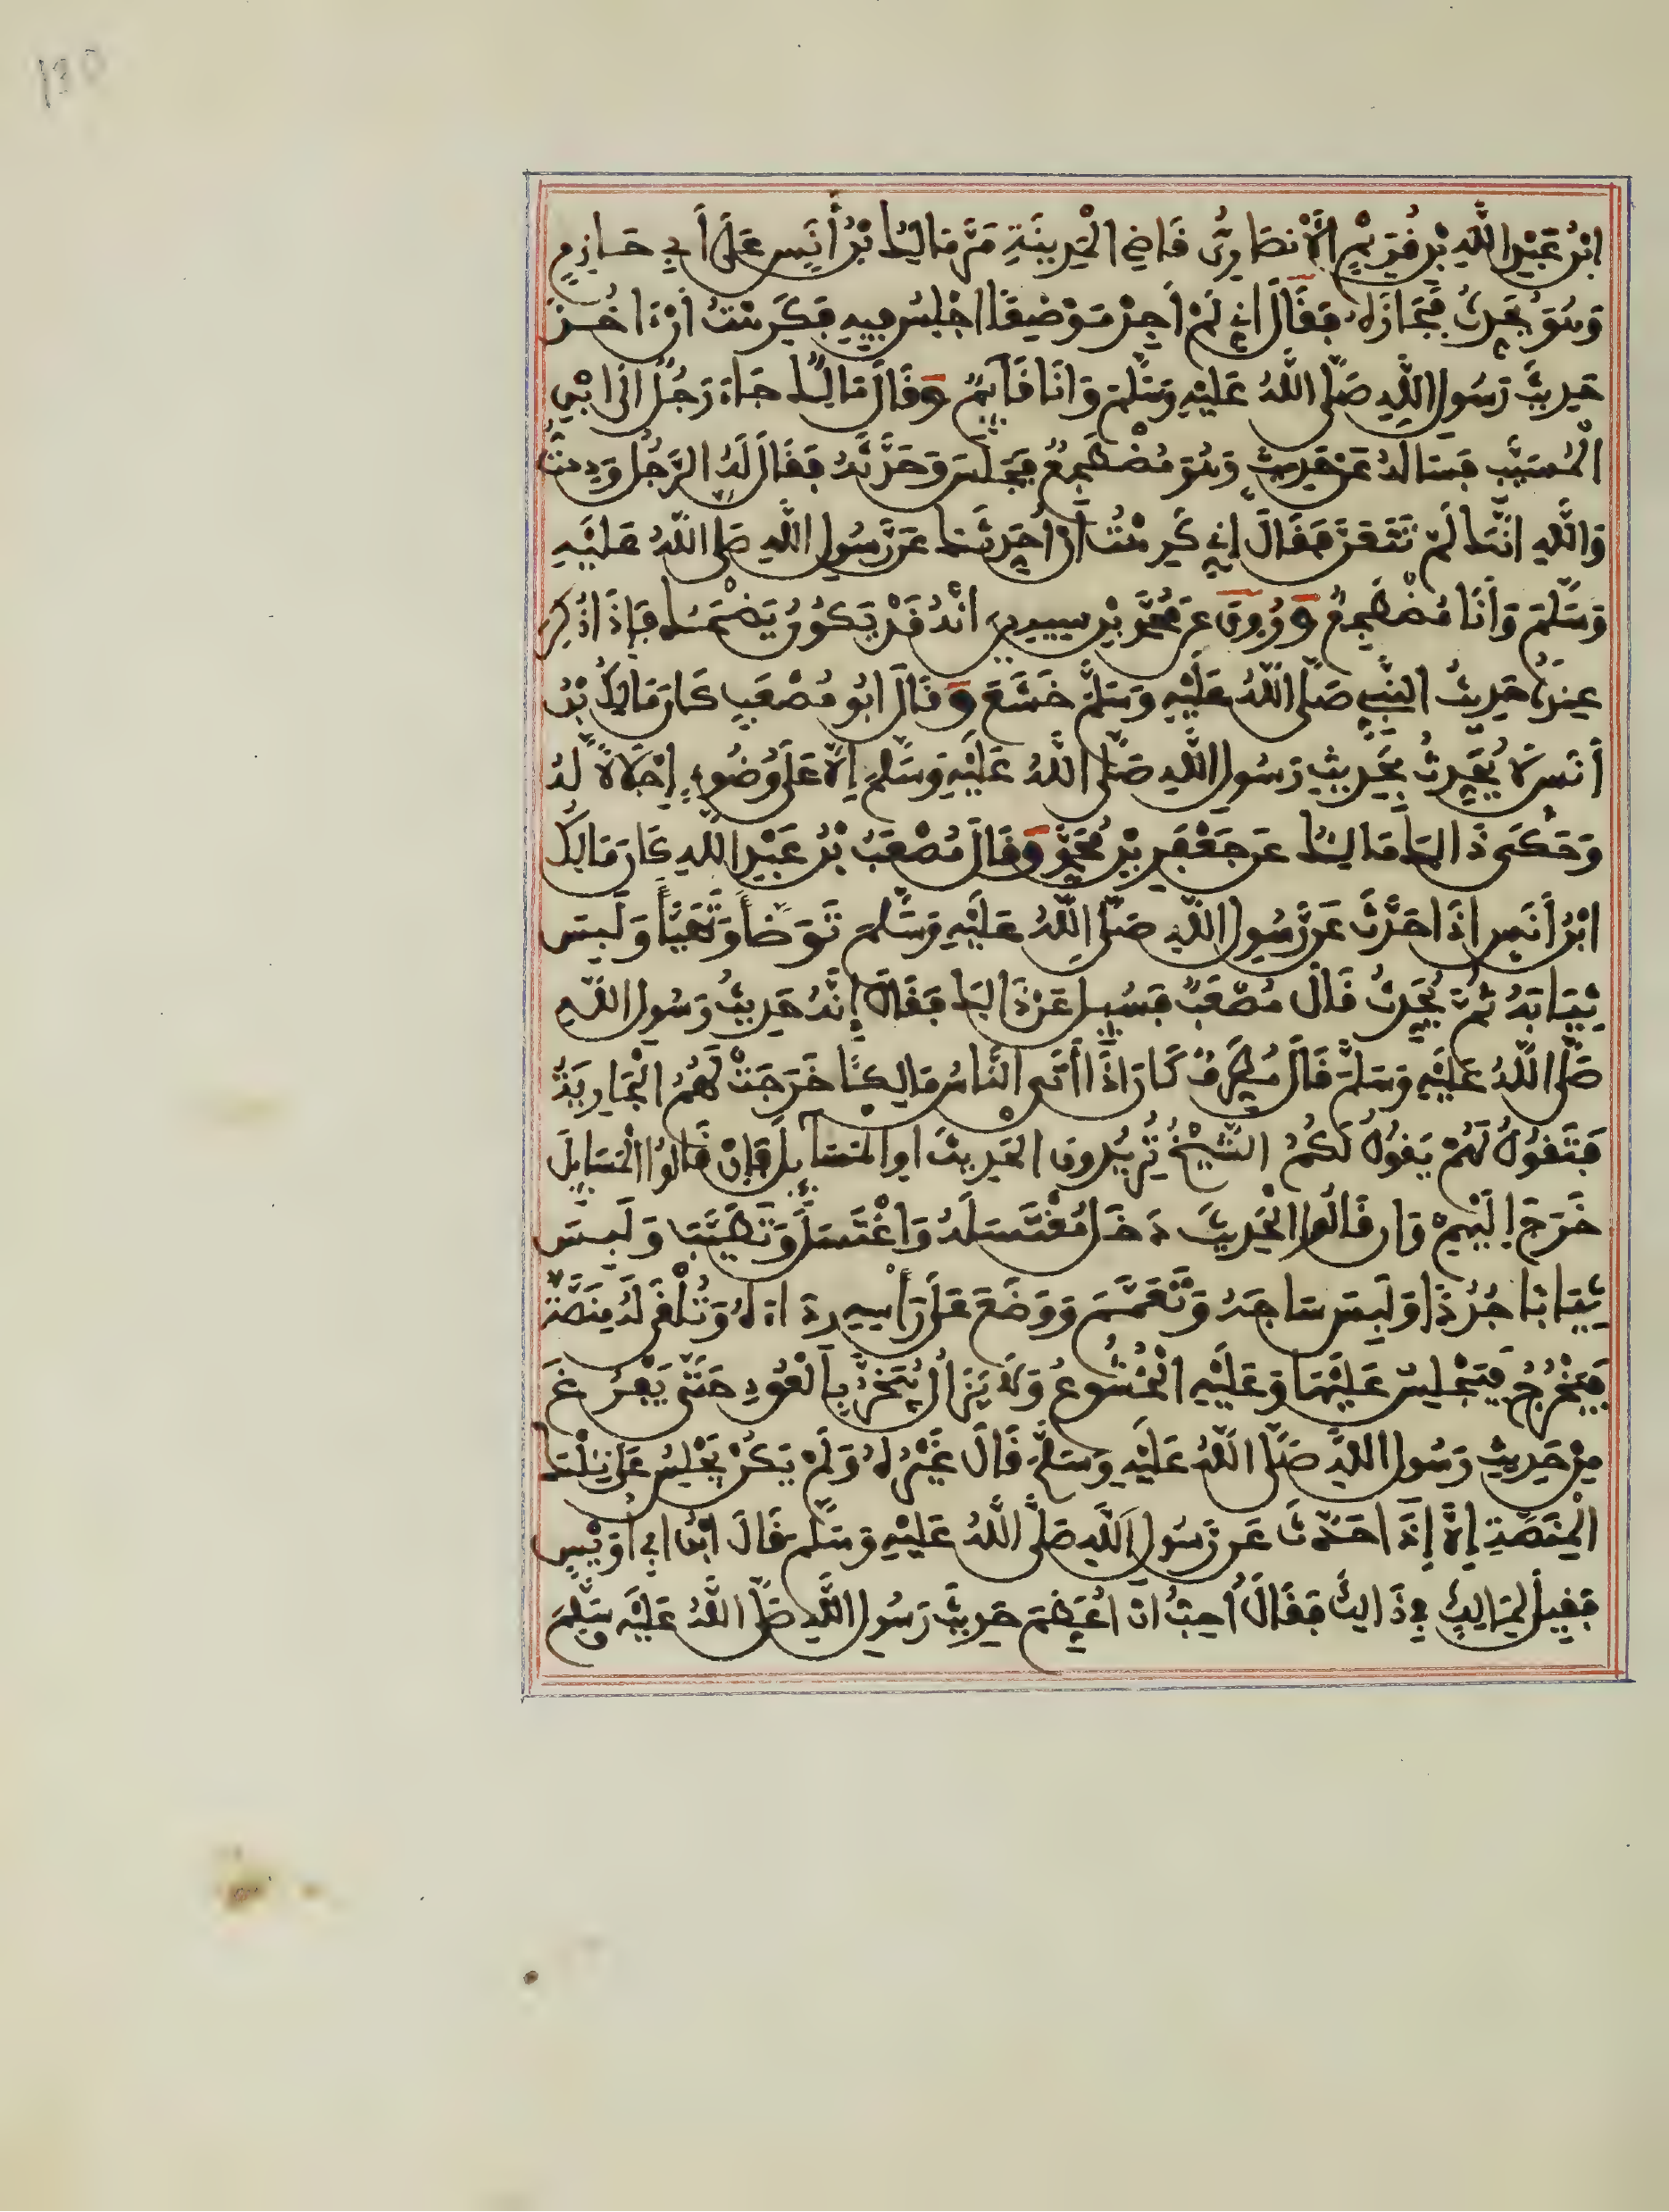 130
ابْنُ عَبْدِ اللَّهِ بْنِ قُرَيْمٍ الْأَنْصَارِيُّ قَاضِي الْمَدِينَةِ مَرَّ مَالِكُ بْنُ أَنَسٍ عَلَى أَبِي حَازِمٍ
وَهُوَ يُحَدِّثُ فَجَازَهُ فَقَالَ إِنِّي لَمْ أَجِدْ مَوْضِعًا أَجْلِسُ فِيهِ فَكَرِهْتُ أَنْ آخُذَ
حَدِيثَ رَسُولِ اللَّهِ صَلَّى اللَّهُ عَلَيْهِ وَسَلَّمَ وَأَنَا قَائِمٌ وَقَالَ مَالِكٌ جَاءَ رَجُلٌ إِلَى ابْنِ
الْمُسَيِّبِ فَسَأَلَهُ عَنْ حَدِيثٍ وَهُوَ مُضْطَجِعٌ فَجَلَسَ وَحَدَّثَهُ فَقَالَ لَهُ الرَّجُلُ وَدِدْتُ
وَاللَّهِ أَنَّكَ لَمْ تَتَعَنَّ فَقَالَ إِنِّي كَرِهْتُ أَنْ أُحَدِّثَكَ عَنْ رَسُولِ اللَّهِ صَلَّى اللَّهُ عَلَيْهِ
وَسَلَّمَ وَأَنَا مُضْطَجِعٌ وَرُوِيَ عَنْ مُحَمَّدِ بْنِ سِيرِينَ أَنَّهُ قَدْ يَكُونُ يَضْحَكُ فَإِذَا ذُكِرَ
عِنْدَهُ حَدِيثُ النَّبِيِّ صَلَّى اللَّهُ عَلَيْهِ وَسَلَّمَ خَشَعَ وَقَالَ أَبُو مُصْعَبٍ كَانَ مَالِكُ بْنُ
أَنَسٍ لَا يُحَدِّثُ بِحَدِيثِ رَسُولِ اللَّهِ صَلَّى اللَّهُ عَلَيْهِ وَسَلَّمَ إِلَّا عَلَى وُضُوءٍ إِجْلَالًا لَهُ
وَحَكَى ذَالِكَ مَالِكٌ عَنْ جَعْفَرِ بْنِ مُحَمَّدٍ وَقَالَ مُصْعَبُ بْنُ عَبْدِ اللَّهِ كَانَ مَالِكُ
ابْنُ أَنَسٍ إِذَا حَدَّثَ عَنْ رَسُولِ اللَّهِ صَلَّى اللَّهُ عَلَيْهِ وَسَلَّمَ تَوَضَّأَ وَتَهَيَّأَ وَلَبِسَ
ثِيَابَهُ ثُمَّ يُحَدِّثُ قَالَ مُصْعَبٌ فَسُئِلَ عَنْ ذَالِكَ فَقَالَ إِنَّهُ حَدِيثُ رَسُولِ اللَّهِ
صَلَّى اللَّهُ عَلَيْهِ وَسَلَّمَ قَالَ مُطَرِّفٌ كَانَ إِذَا أَتَى النَّاسُ مَالِكًا خَرَجَتْ لَهُمُ الْجَارِيَةُ
فَتَقُولُ لَهُمْ يَقُولُ لَكُمُ الشَّيْخُ تُرِيدُونَ الْحَدِيثَ أَوِ الْمَسَائِلَ فَإِنْ قَالُوا الْمَسَائِلَ
خَرَجَ إِلَيْهِمْ وَإِنْ قَالُوا الْحَدِيثَ دَخَلَ مُغْتَسَلَهُ وَاغْتَسَلَ وَتَطَيَّبَ وَلَبِسَ
ثِيَابًا جُدُدًا وَلَبِسَ سَاجَهُ وَتَعَمَّمَ وَوَضَعَ عَلَى رَأْسِهِ رِدَاءَهُ وَتُلْقَى لَهُ مِنَصَّةٌ
فَيَخْرُجُ فَيَجْلِسُ عَلَيْهَا وَعَلَيْهِ الْخُشُوعُ وَلَا يَزَالُ يُبَخَّرُ بِالْعُودِ حَتَّى يَفْرُغَ
مِنْ حَدِيثِ رَسُولِ اللَّهِ صَلَّى اللَّهُ عَلَيْهِ وَسَلَّمَ قَالَ غَيْرُهُ وَلَمْ يَكُنْ يَجْلِسُ عَلَى تِلْكَ
الْمِنَصَّةِ إِلَّا إِذَا حَدَّثَ عَنْ رَسُولِ اللَّهِ صَلَّى اللَّهُ عَلَيْهِ وَسَلَّمَ قَالَ ابْنُ أَبِي أُوَيْسٍ
فَقِيلَ لِمَالِكٍ فِي ذَالِكَ فَقَالَ أُحِبُّ أَنْ أُعَظِّمَ حَدِيثَ رَسُولِ اللَّهِ صَلَّى اللَّهُ عَلَيْهِ وَسَلَّمَ